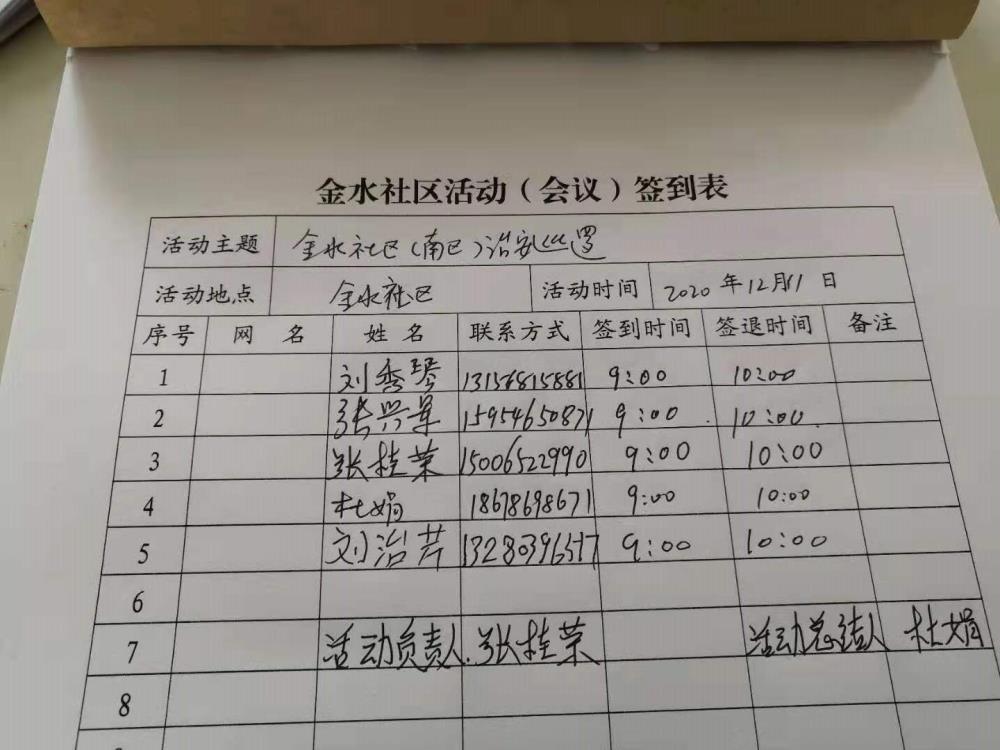 金水社区活动（会议）签到表
活动主题 金水社区(南区)治安巡逻
活动地点 金水社区 活动时间 2020年12月11日
序号 网名 姓名 联系方式 签到时间 签退时间 备注
1 刘秀琴 13156815881 9:00 10:00
2 张兴军 15954650871 9:00 10:00
3 张桂荣 15006522990 9:00 10:00
4 杜娟 18678698671 9:00 10:00
5 刘治芹 13280396517 9:00 10:00
6
7 活动负责人.张桂荣 活动总结人 杜娟
8